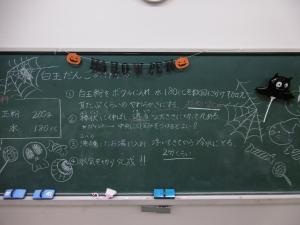 HALLOWEEN
白玉だんご
白玉粉 200g
水 180cc
① 白玉粉をボウルに入れ 水180ccを数回に分けて加え
耳たぶくらいのやわらかさにする。
② 棒状にのばし 適当な大きさに切って丸める
③ 沸とうしたお湯に入れ 浮いてきてから 冷水にとる。
2分くらい
④ 水気を切り完成!!